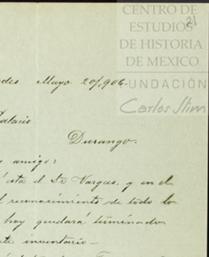 CENTRO DE
ESTUDIOS
DE HISTORIA
DE MEXICO
21
FUNDACIÓN
Carlos Slim
Mayo 20/906.
Durango.
amigo:
esta el Sr Vargas, y en el
reconocimiento de todo lo
hoy quedará terminado
inventario—